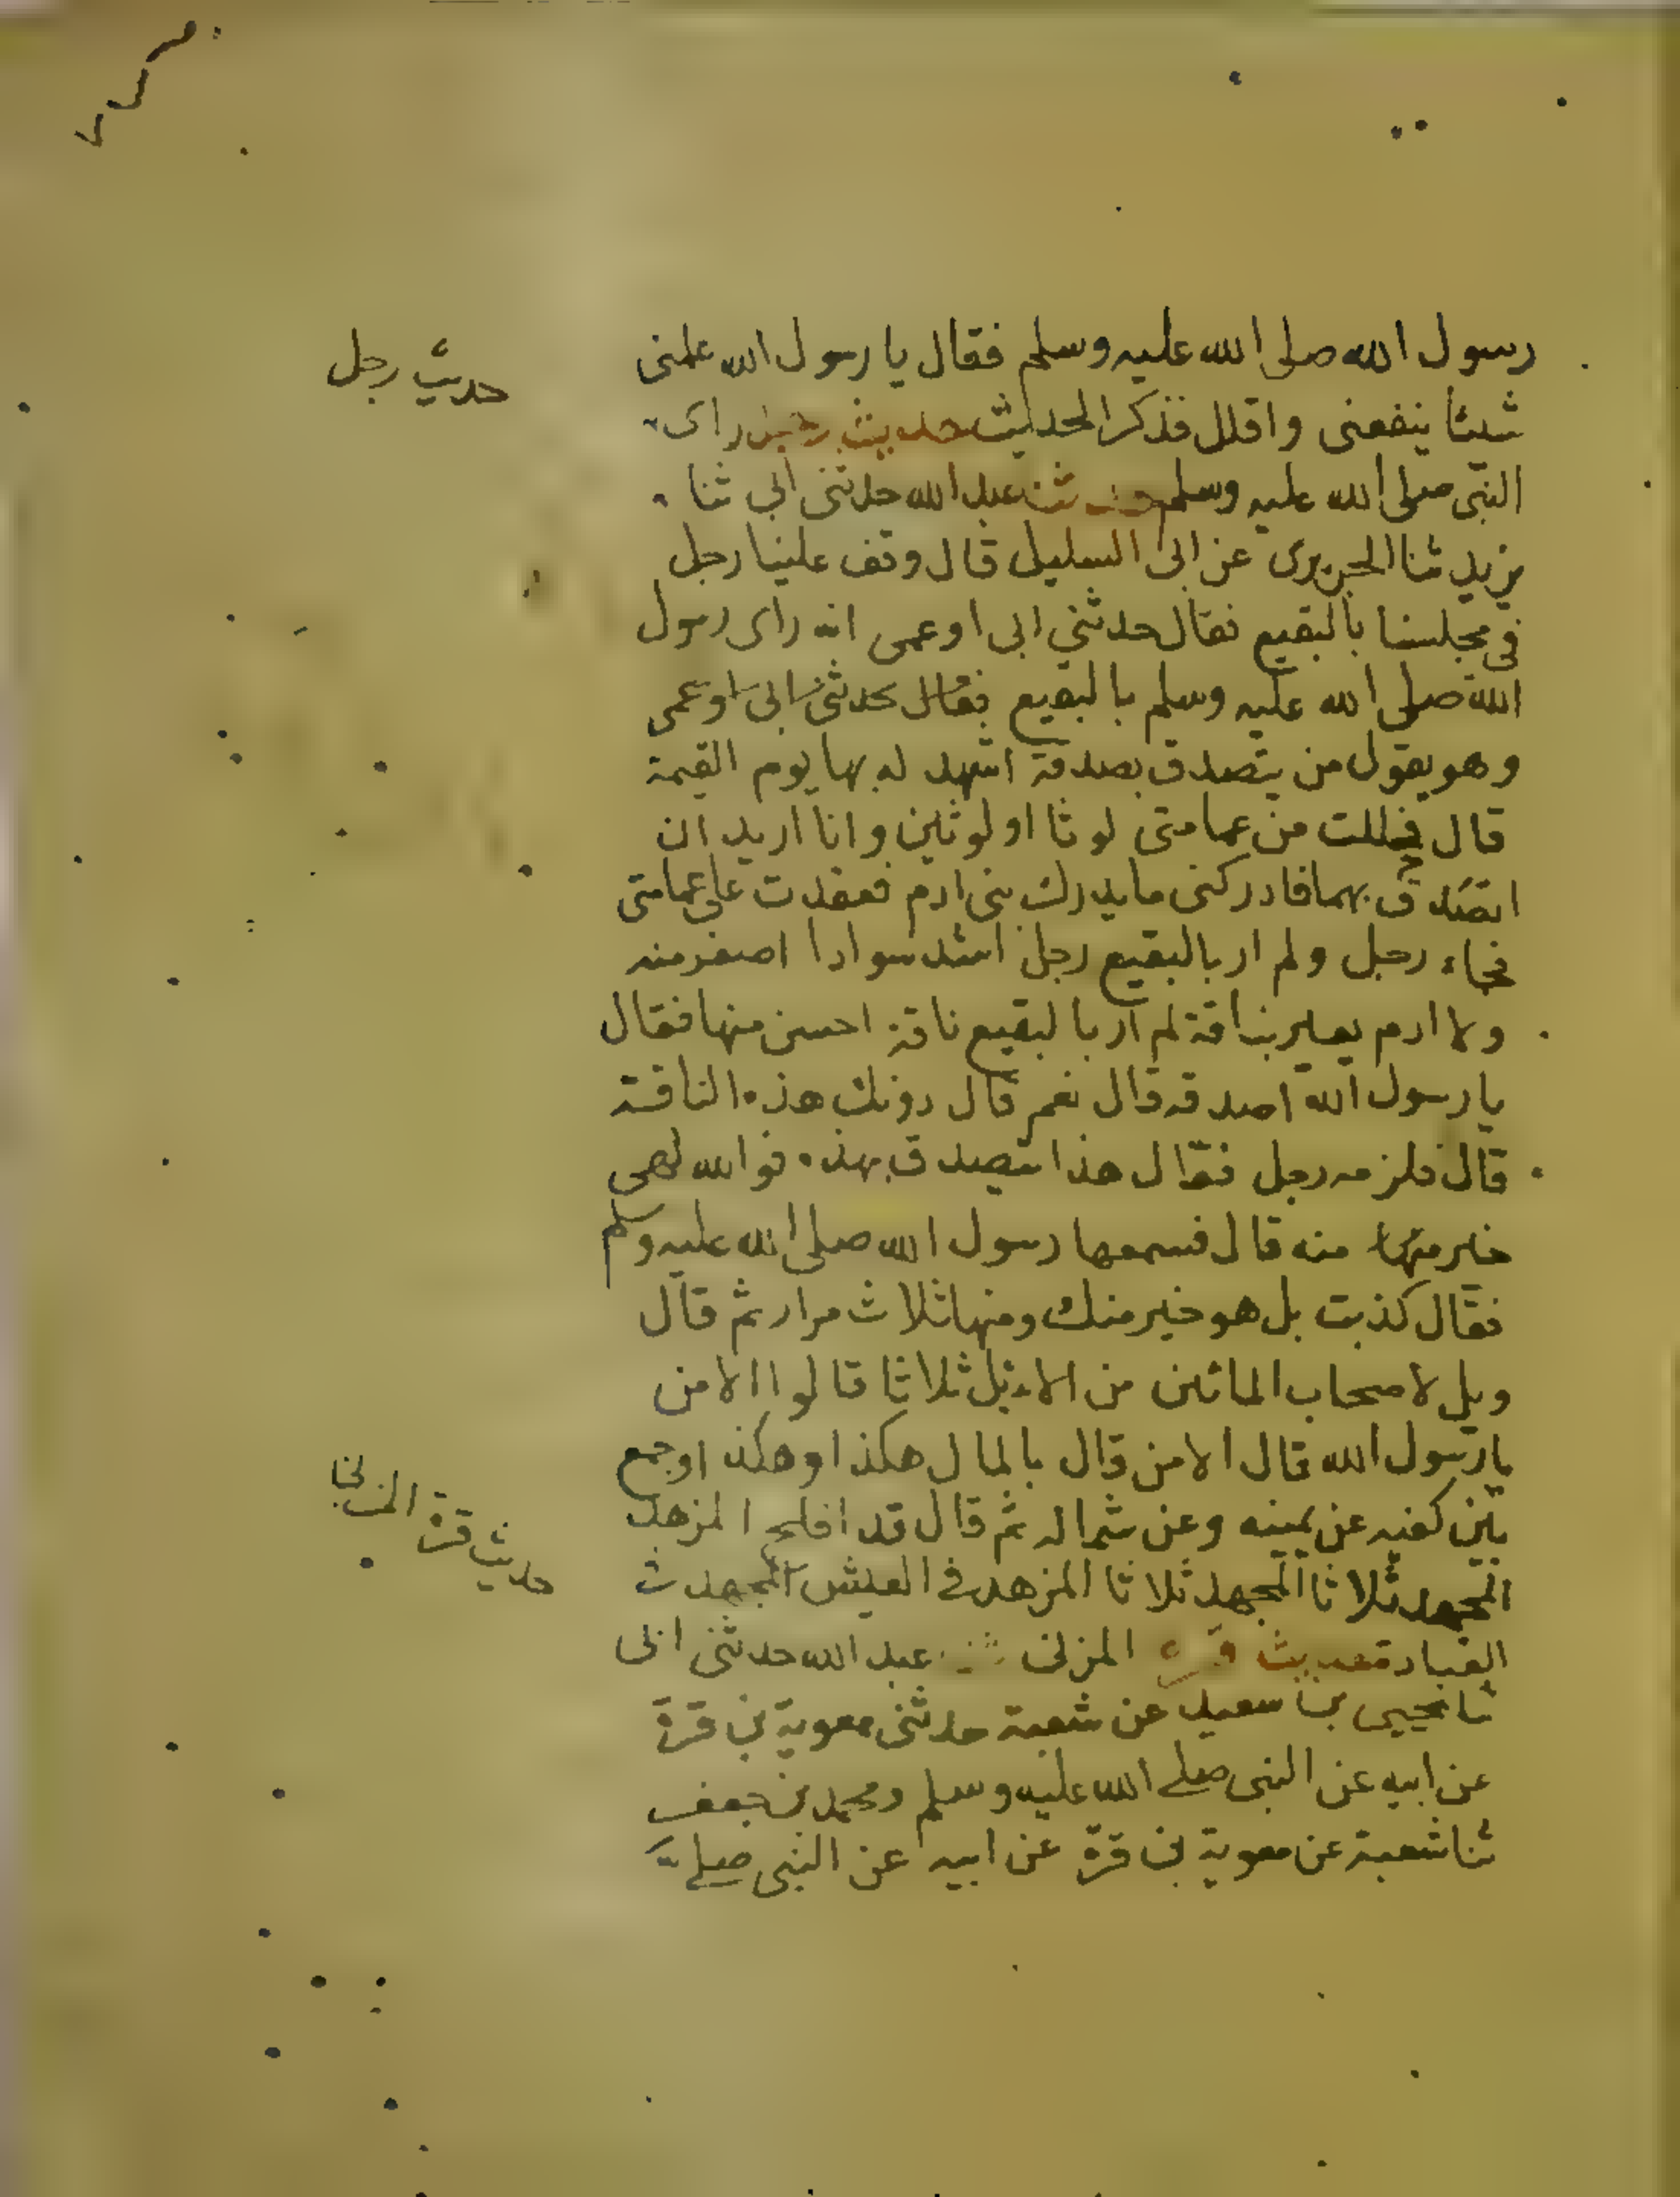 رسول الله صلى الله عليه وسلم فقال يا رسول الله علمنى
حديث رجل
شيئا ينفعنى واقلل فذكر الحديث حديث رجل راى
النبى صلى الله عليه وسلم حدثنا عبد الله حدثنى ابى ثنا
يزيد ثنا الجريرى عن ابى السليل قال وقف علينا رجل
فى مجلسنا بالبقيع فقال حدثني ابى او عمى انه راى رسول
الله صلى الله عليه وسلم بالبقيع فقال حدثنى ابى او عمى
وهو يقول من يتصدق بصدقة اشهد له بها يوم القيمة
قال فحللت من عمامتى لوثا او لوثين وانا اريد ان
اتصدق بهما فادركنى ما يدرك بنى ادم فعقدت على عمامتى
فجاء رجل ولم ار بالبقيع رجل اشد سوادا اصفر منه
ولا ادم بعير بناقة لم ار بالبقيع ناقة احسن منها فقال
يا رسول الله اصدقه قال نعم قال دونك هذه الناقة
قال فلزمه رجل فقال هذا يتصدق بهذه فوالله لهى
خير منها منه قال فسمعها رسول الله صلى الله عليه وسلم
فقال كذبت بل هو خير منك ومنها ثلاث مرار ثم قال
ويل لاصحاب المائين من الابل ثلاثا قالوا الا من
يا رسول الله قال الا من قال بالمال هكذا وهكذا وجمع
بين كفيه عن يمينه وعن شماله ثم قال قد افلح المزهد
حديث قرة المزنى
المجهد ثلاثا المجهد ثلاثا المزهد فى العيش المجهد فى
العباد حديث قرة المزنى ثنا عبد الله حدثنى ابى
ثنا يحيى بن سعيد عن شعبة حدثنى معوية بن قرة
عن ابيه عن النبى صلى الله عليه وسلم ومحمد بن جعفر
ثنا شعبة عن معوية بن قرة عن ابيه عن النبى صلى